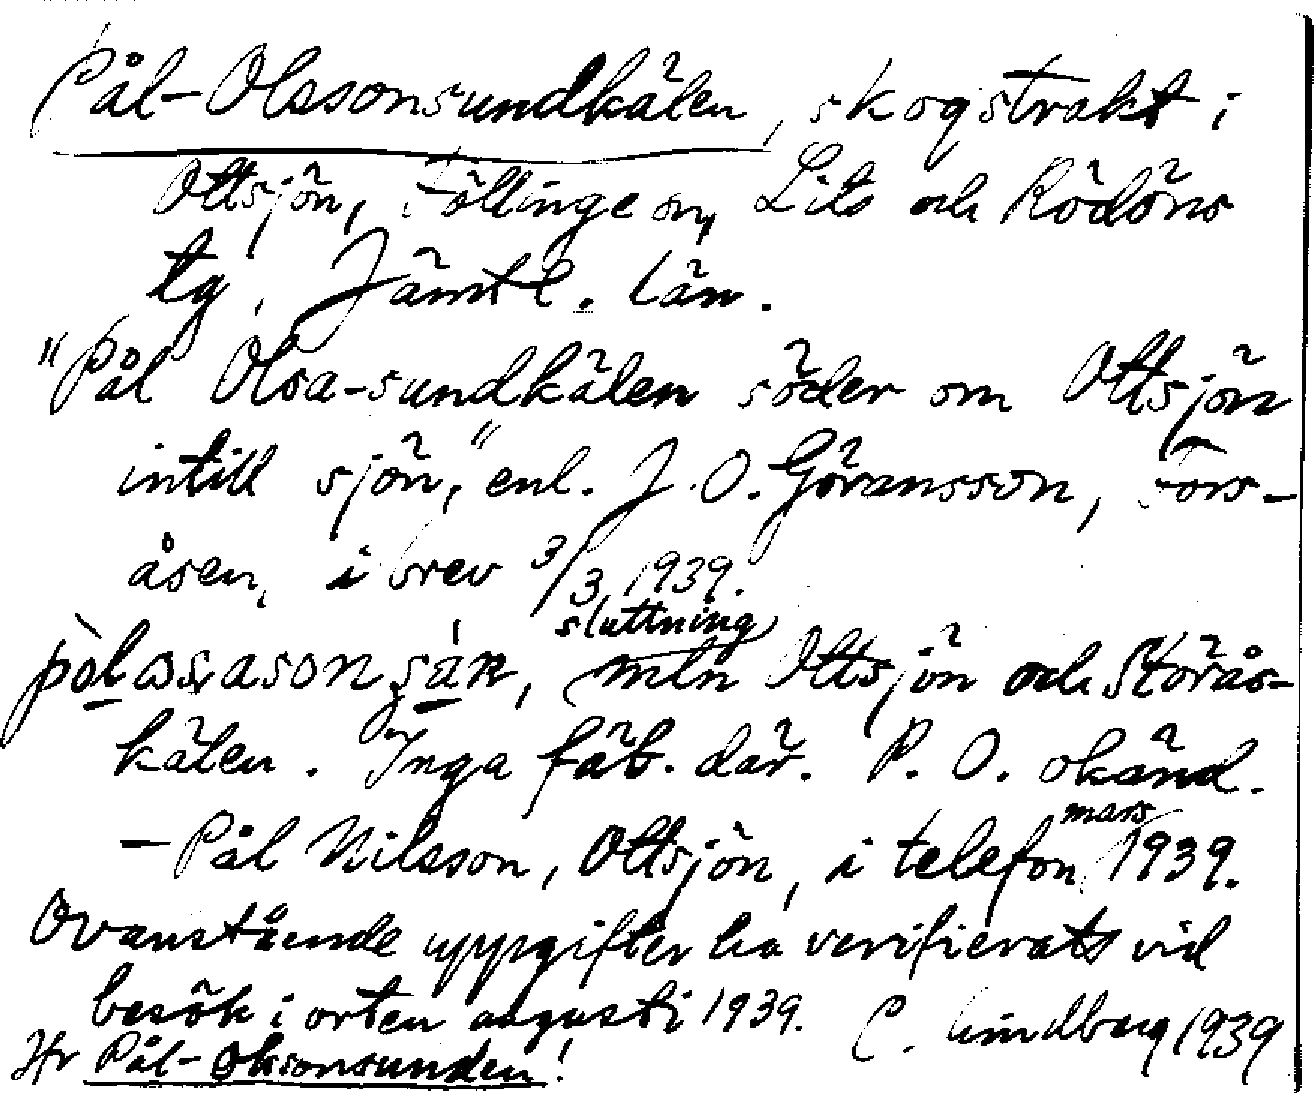 Pål-Olssonsundkälen, skogstrakt i
Ottsjön, Föllinge sn, Lits och Rödöns
tg, Jämtl. län.
"Pål Olsa-sundkälen söder om Ottsjön
intill sjön," enl. J. O. Göransson, Fors-
åsen, i brev 3/3 1939.
sluttning
mln Ottsjön och Storås-
kälen. Inga fäb. där. P. O. okänd.
mars
- Pål Nilsson, Ottsjön, i telefon 1939.
Ovanstående uppgifter ha verifierats vid
besök i orten augusti 1939. C. Lindberg 1939
Jfr Pål-Olssonsunden!